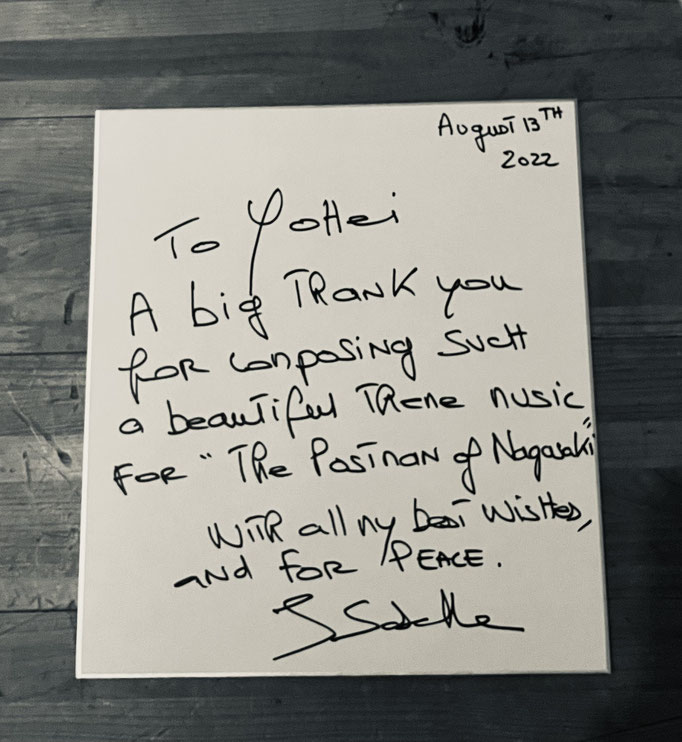 August 13TH
2022
To Yohei
A big Thank you
for composing such
a beautiful theme music
for "The Postman of Nagasaki"
With all my best wishes,
and for PEACE.